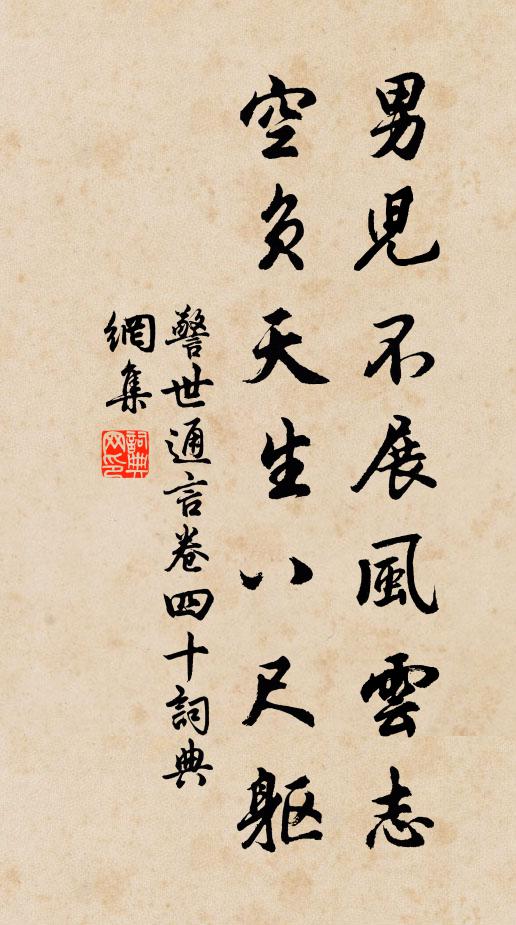 男兒不展風雲志
空負天生八尺軀
警世通言卷四十詞典
網集
詞典
网印